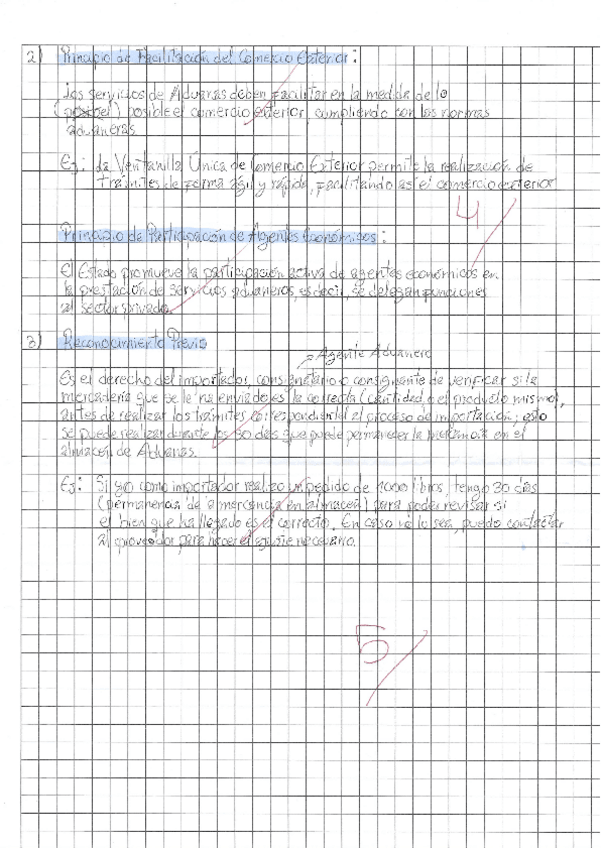 2) Principio de Facilitación del Comercio Exterior:
Los servicios de Aduanas deben facilitar en la medida de lo
( ) posible el comercio exterior, cumpliendo con las normas
aduaneras.
Ej: La Ventanilla Única de Comercio Exterior permite la realización de
trámites de forma ágil y rápida, facilitando así el comercio exterior
4
Principio de Participación de Agentes Económicos:
El Estado promueve la participación activa de agentes económicos en
la prestación de servicios aduaneros, es decir, se delegan funciones
al sector privado.
3) Reconocimiento Previo
Agente Aduanero
Es el derecho del importador, consignatario o consignante de verificar si la
mercadería que se le ha enviado es la correcta (cantidad o el producto mismo),
antes de realizar los trámites correspondientes al proceso de importación; esto
se puede realizar durante los 30 días que puede permanecer la mercancía en el
almacén de Aduanas.
Ej: Si yo como importador realizo un pedido de 1000 libros, tengo 30 días
(permanencia de la mercancía en almacén) para poder revisar si
el bien que ha llegado es el correcto. En caso no lo sea, puedo contactar
al proveedor para hacer el ajuste necesario.
5